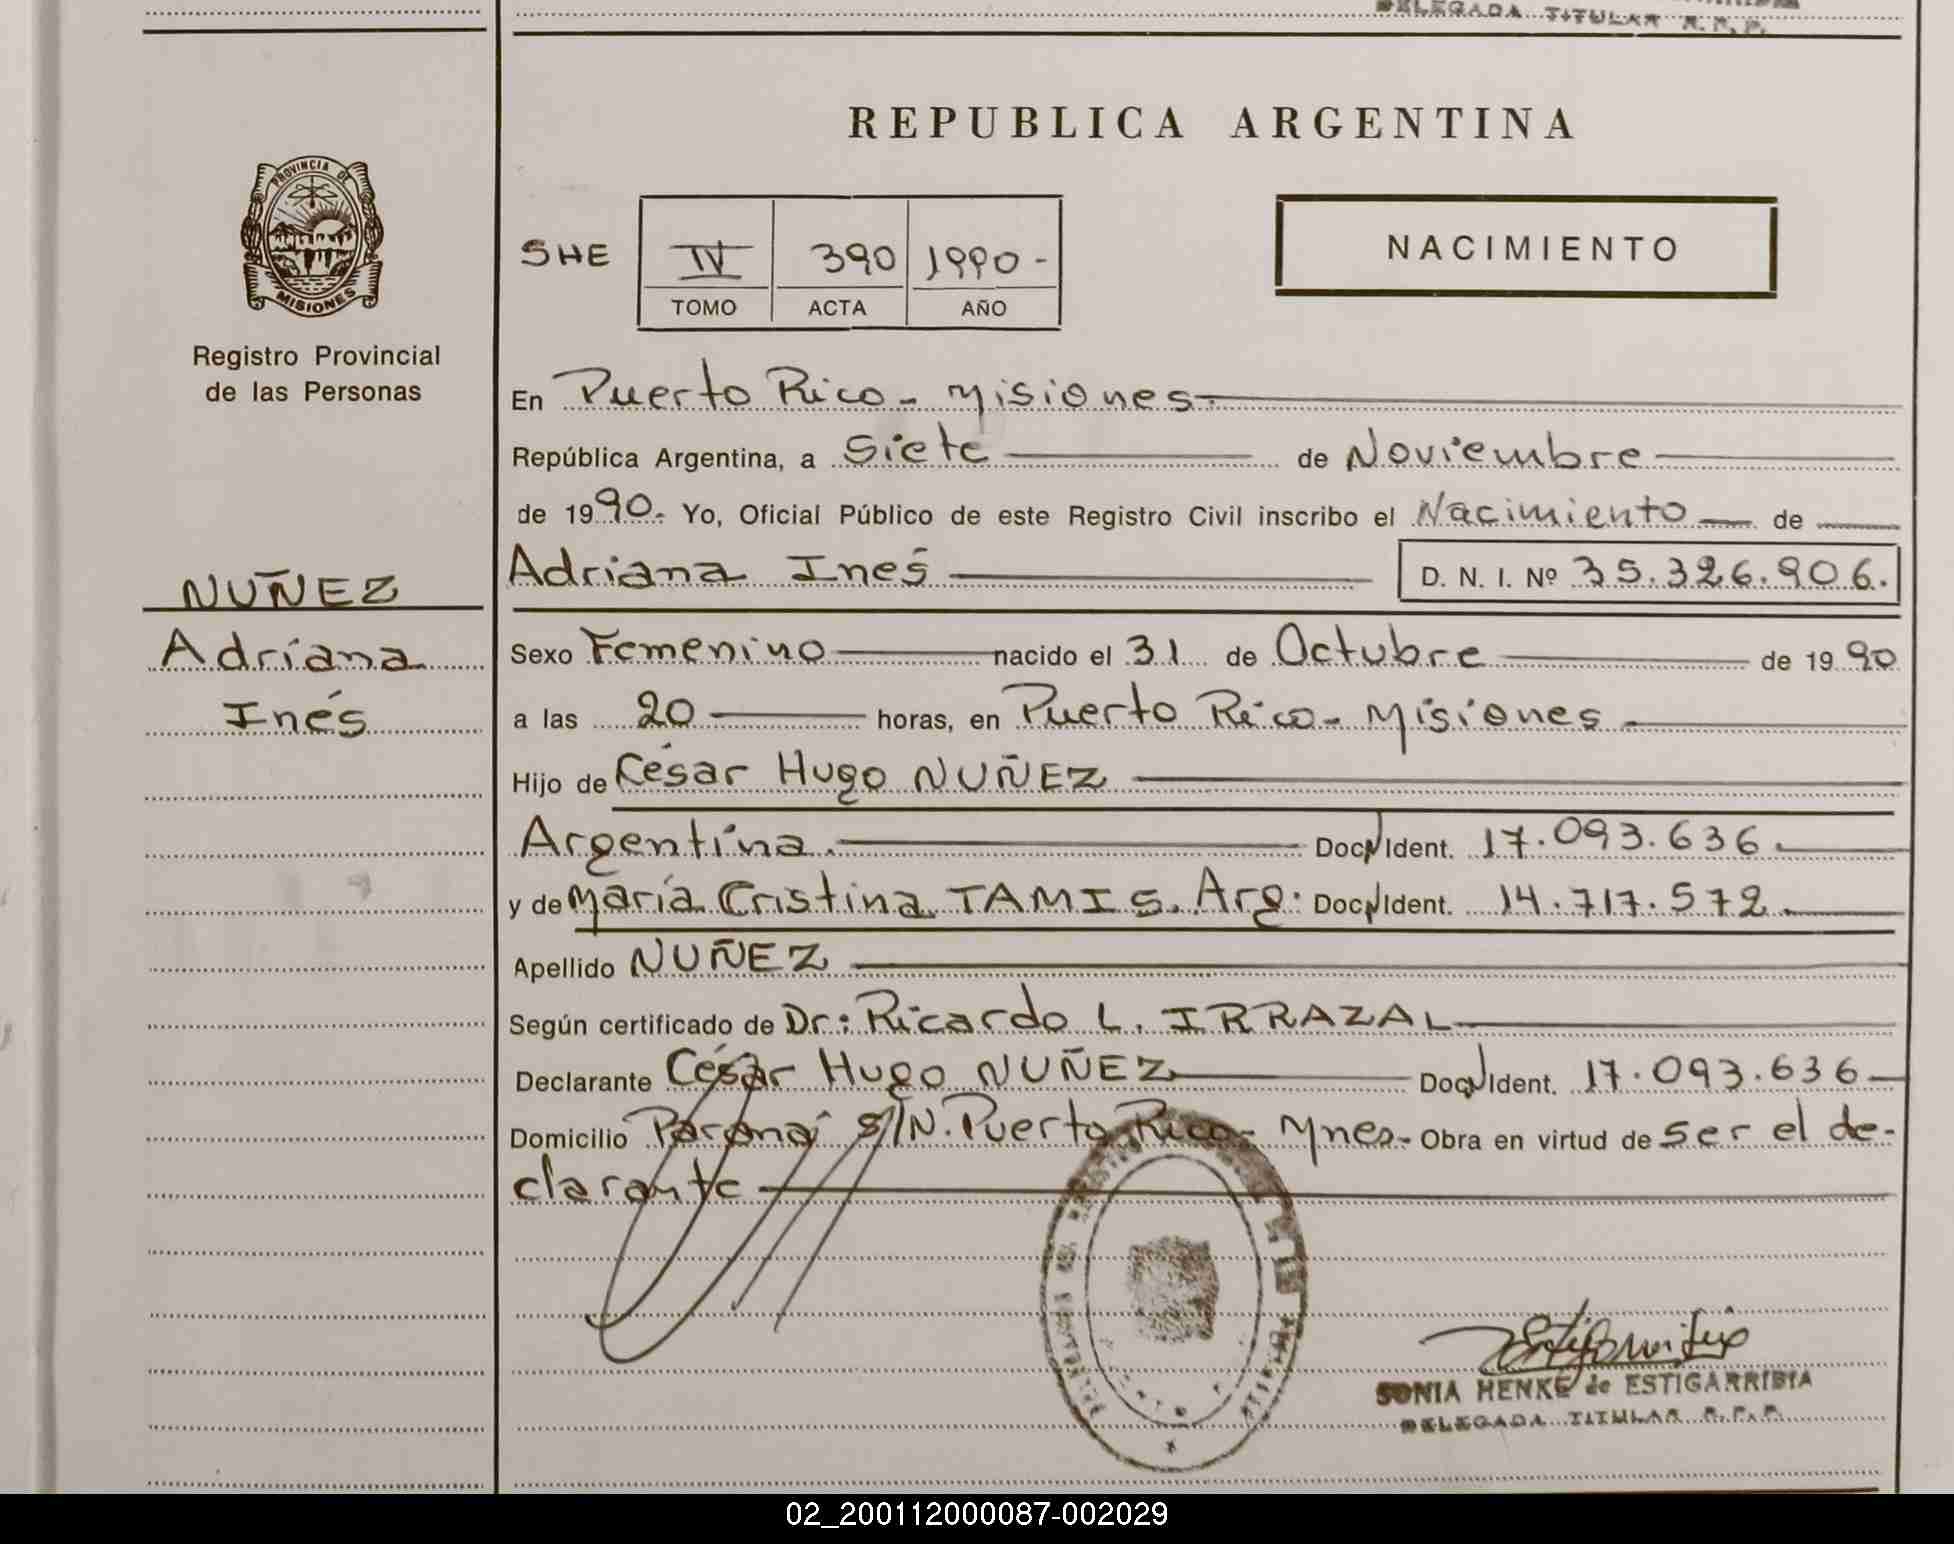 DELEGADA TITULAR R.P.P.
REPUBLICA ARGENTINA
PROVINCIA DE
MISIONES
Registro Provincial
de las Personas
SHE
IV 390 1990-
TOMO ACTA AÑO
NACIMIENTO
En Puerto Rico - Misiones
República Argentina, a Siete de Noviembre
de 1990. Yo, Oficial Público de este Registro Civil inscribo el Nacimiento de
Adriana Inés D. N. I. Nº 35.326.906.
NUÑEZ
Adriana
Inés
Sexo Femenino nacido el 31 de Octubre de 1990
a las 20 horas, en Puerto Rico - Misiones
Hijo de César Hugo NUÑEZ
Argentina. Doc. Ident. 17.093.636.
y de María Cristina TAMIS. Arg. Doc. Ident. 14.717.572.
Apellido NUÑEZ
Según certificado de Dr: Ricardo L. IRRAZAL
Declarante César Hugo NUÑEZ Doc. Ident. 17.093.636
Domicilio Paraná S/N. Puerto Rico - Mnes. Obra en virtud de ser el de-
clarante
SONIA HENKE de ESTIGARRIBIA
DELEGADA TITULAR R.P.P.
02_200112000087-002029